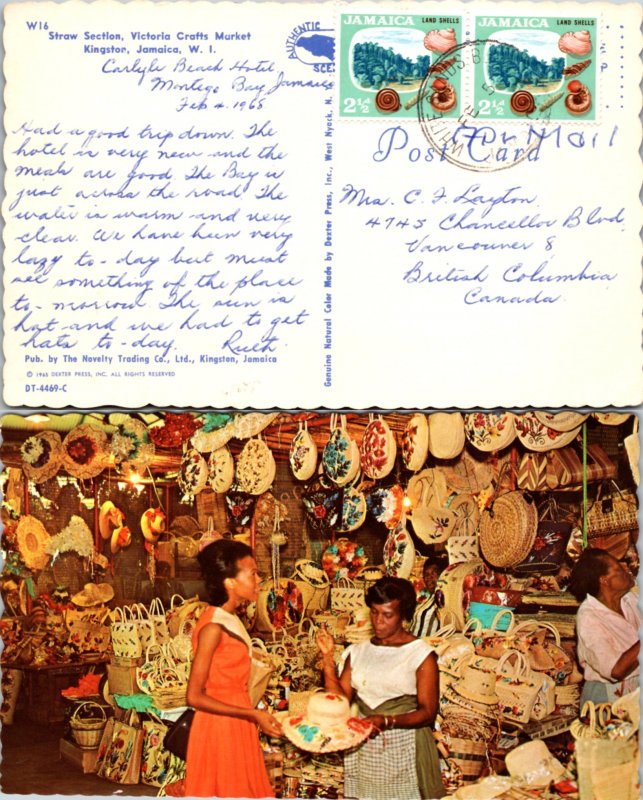 W16
Straw Section, Victoria Crafts Market
Kingston, Jamaica, W. I.
Carlyle Beach Hotel
Montego Bay, Jamaica
Feb 4. 1965
Had a good trip down. The
hotel is very new and the
meals are good The Bay is
just across the road. The
water is warm and very
clear. We have been very
lazy to-day but must
see something of the place
to-morrow. The sun is
hot and we had to get
hats to-day. Ruth.
Pub. by The Novelty Trading Co., Ltd., Kingston, Jamaica
© 1965 DEXTER PRESS, INC. ALL RIGHTS RESERVED
DT-4469-C
Genuine Natural Color Made by Dexter Press, Inc., West Nyack, N.
AUTHENTIC
SCE
JAMAICA LAND SHELLS
2½d
JAMAICA LAND SHELLS
2½d
WHITE SANDS B
Air Mail
Post Card
Mrs. C. F. Layton
4745 Chancellor Blvd,
Vancouver 8
British Columbia
Canada.
JAMAICA